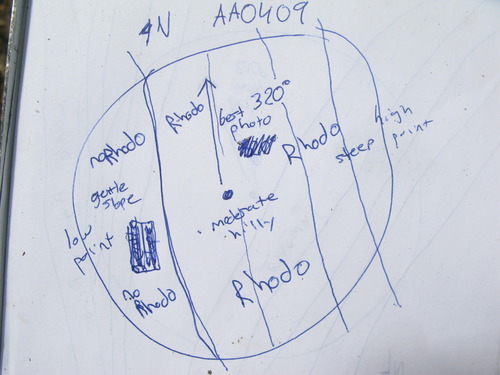 4N AA0409
no Rhodo
Rhodo
best
photo
320°
Rhodo
steep
high
point
gentle
slope
low
point
moderate
hilly
no
Rhodo
Rhodo